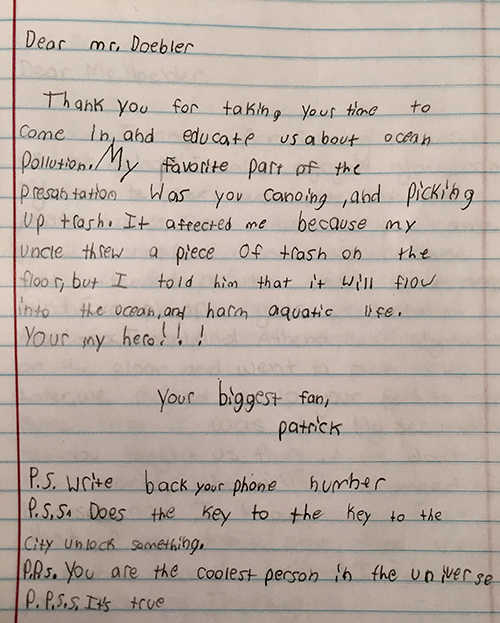 Dear mr. Doebler
Thank you for taking your time to
come in, and educate us about ocean
pollution. My favorite part of the
presantation was you canoing, and picking
up trash. It affected me because my
uncle threw a piece of trash on the
floor, but I told him that it will flow
into the ocean, and harm aquatic life.
Your my hero!!!
Your biggest fan,
patrick
P.S. Write back your phone number
P.S.S. Does the key to the key to the
city unlock something.
P.P.S. You are the coolest person in the universe
P.P.S.S. It's true